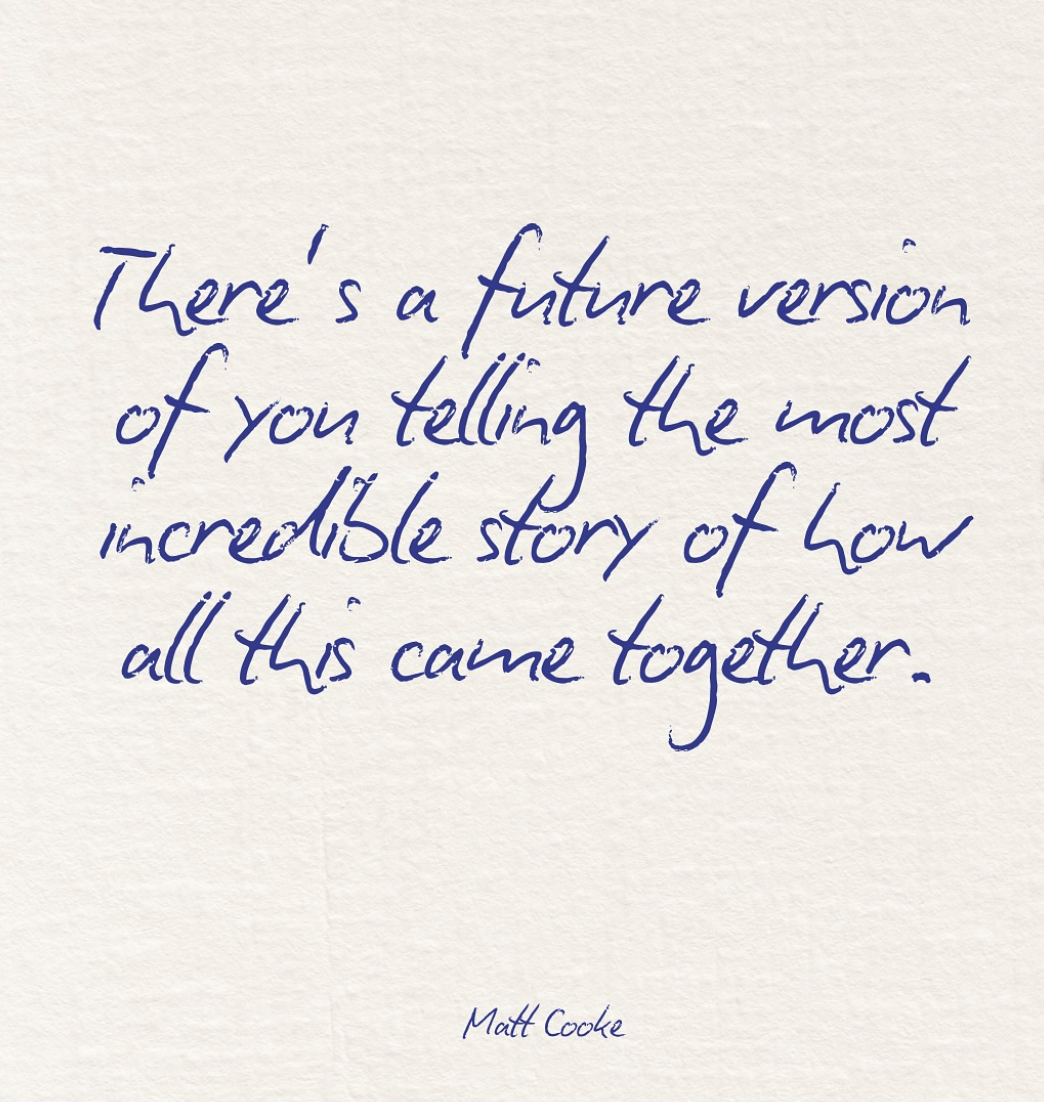 There's a future version
of you telling the most
incredible story of how
all this came together.
Matt Cooke